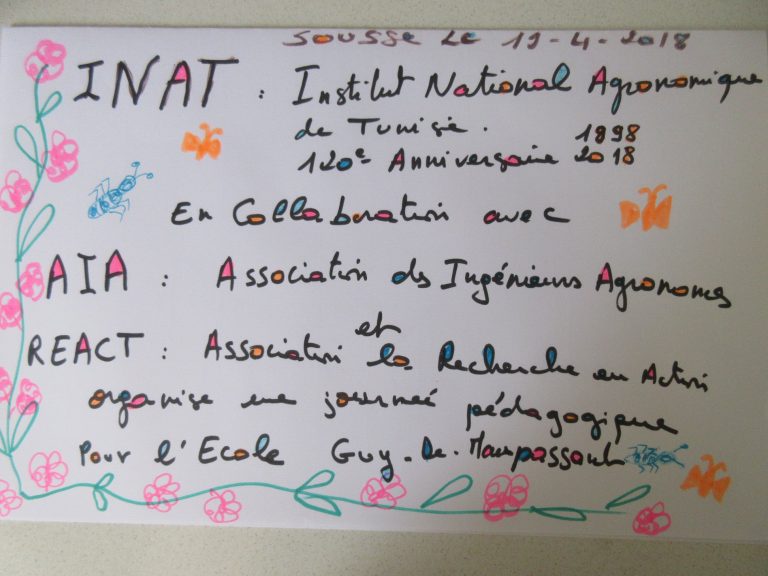 SOUSSE LE 19-4-2018
INAT : Institut National Agronomique
de Tunisie. 1898
120e Anniversaire 2018
En Collaboration avec
AIA : Association des Ingénieurs Agronomes
et
REACT : Association la Recherche en Action
organise une journée pédagogique
Pour l'Ecole Guy-de-Maupassant